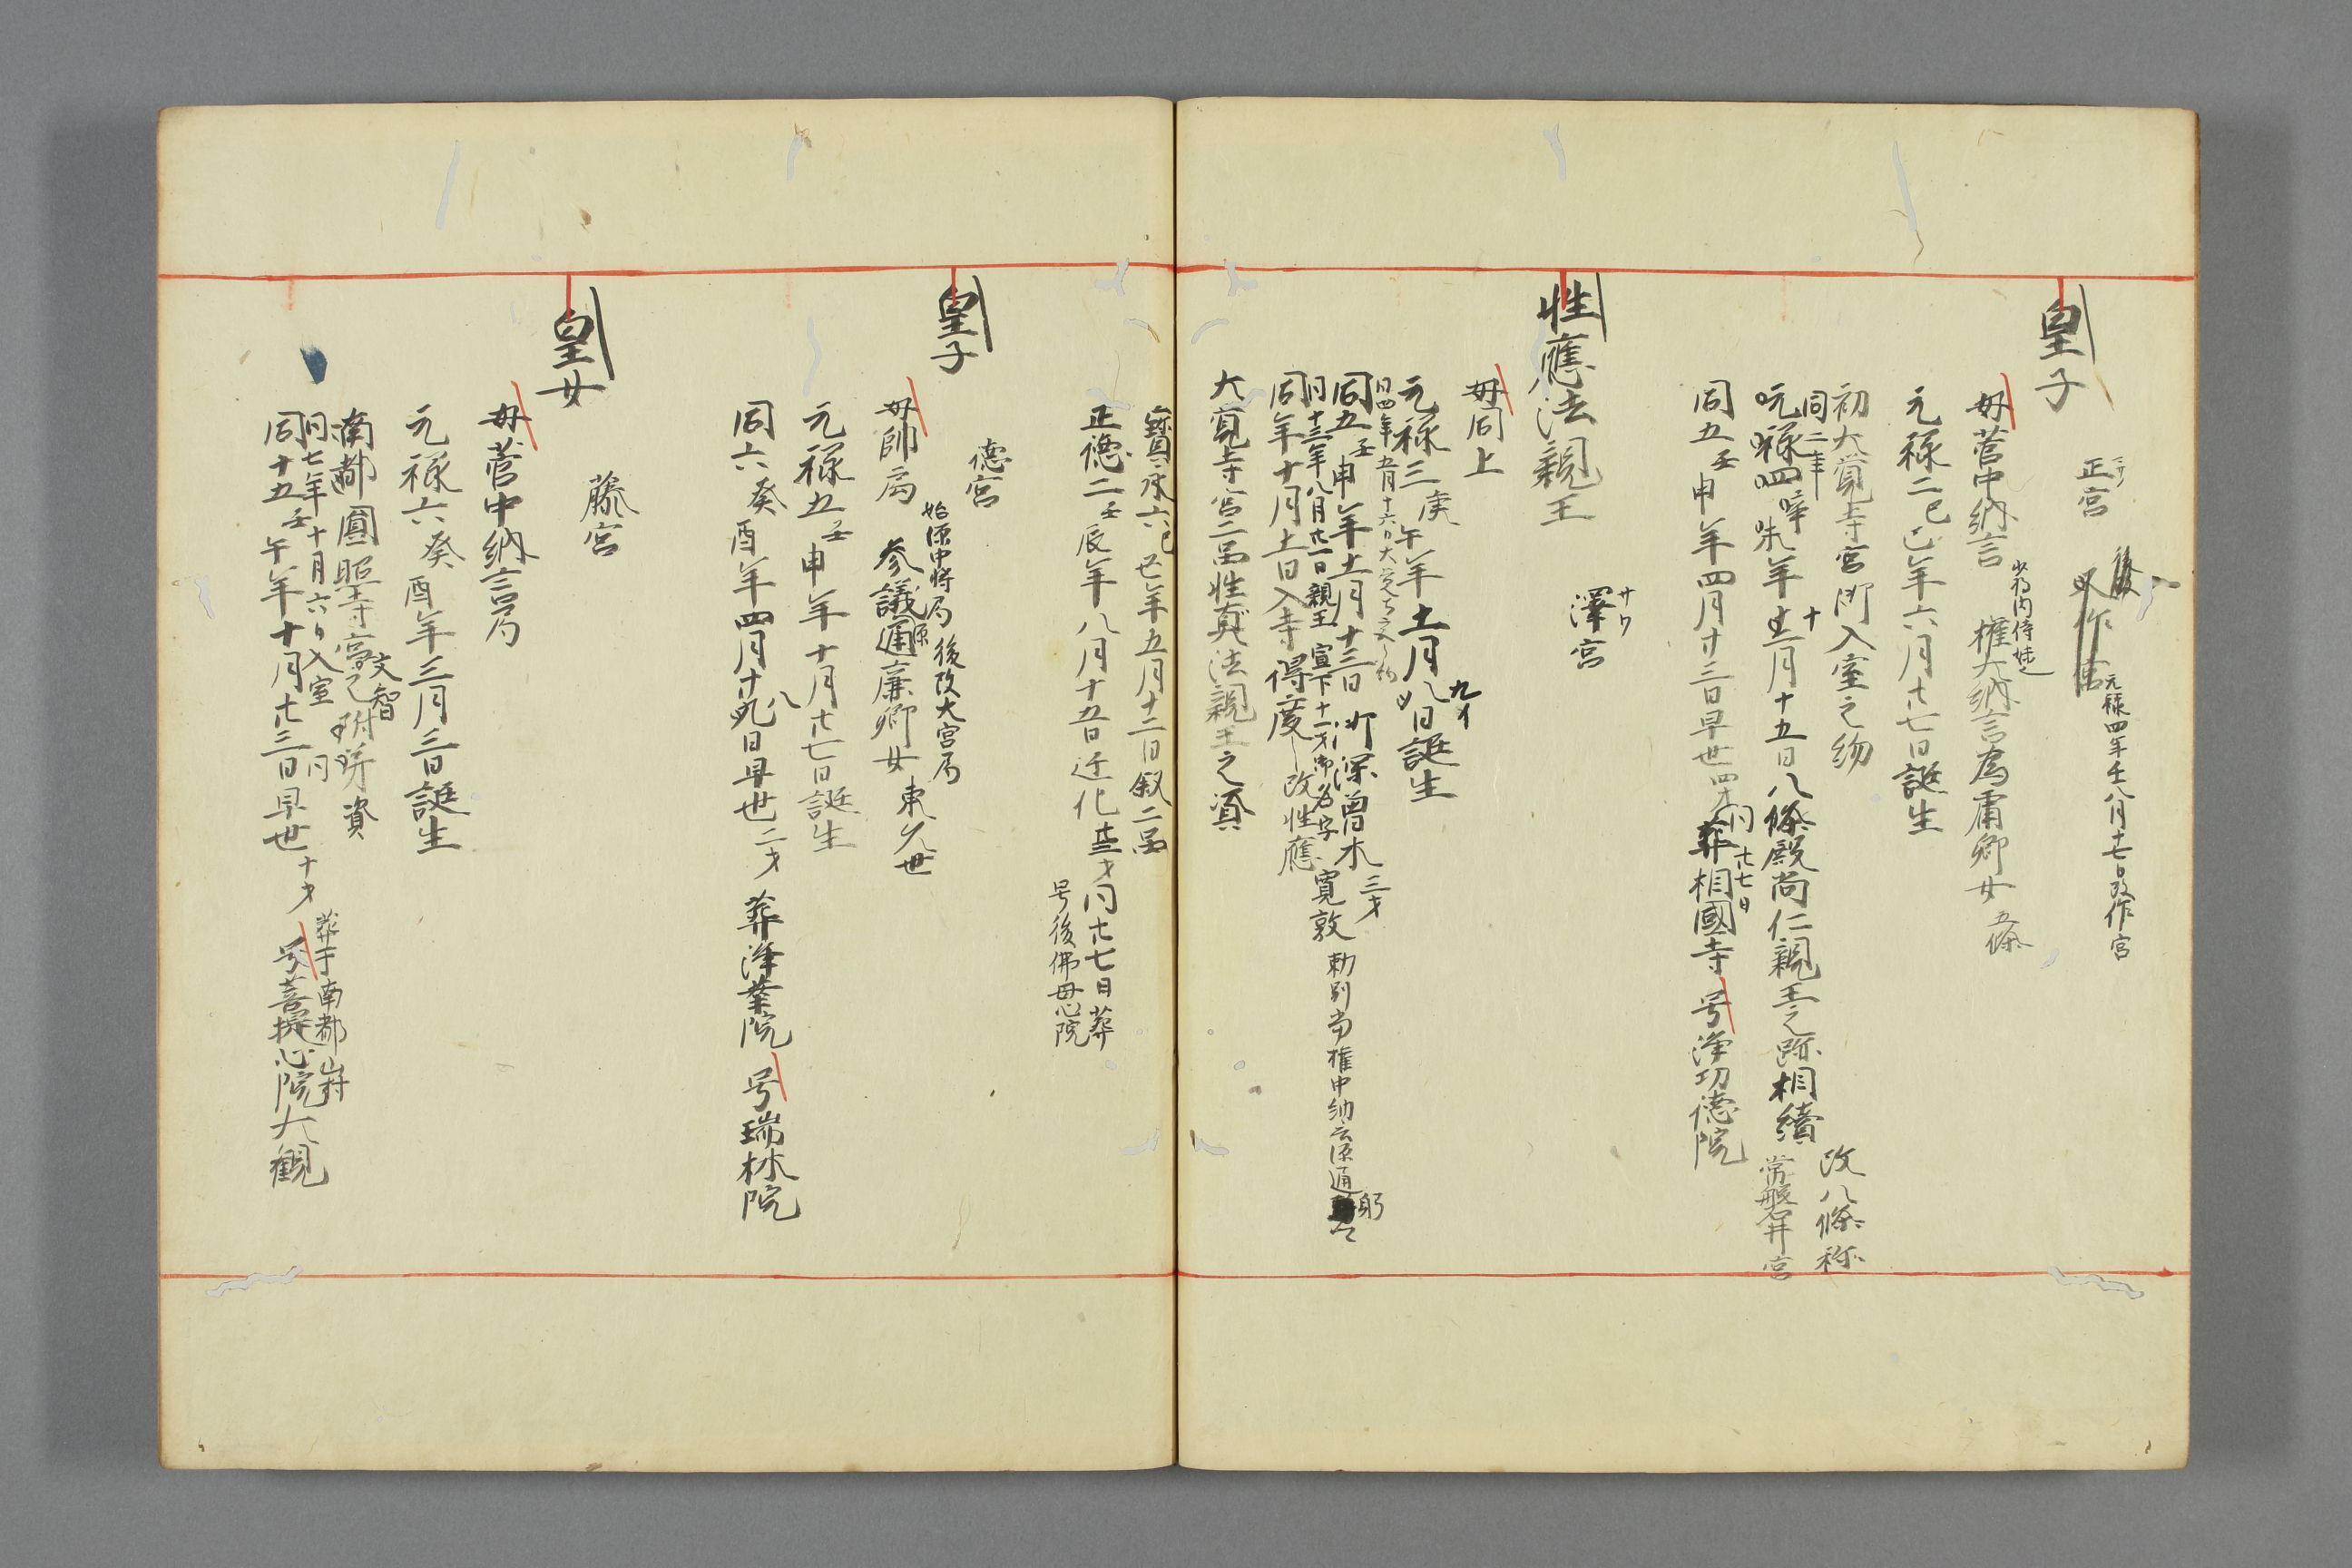 皇子
正宮
後
又作宮
元禄四年壬八月十七日改作宮
母菅中納言
権大納言為庸卿女
五條
元禄二己巳年六月廿七日誕生
初大覚寺宮御入室之約
同二年
元禄四辛未年
十
月十五日八條殿尚仁親王之跡相續
改八條称
常磐井宮
同五壬申年四月廿三日早世四才
同廿七日
葬相國寺
号浄功徳院
性應法親王
サワ
澤宮
母同上
元禄三庚午年十一月八日誕生
九イ
同四年五月十六日大覚寺
同五壬申年十一月十三日御深曽木
三才
同十三年八月廿一日親王宣下十一才御名字寛敦
勅別當権中納言源通躬
同年十月十一日入寺得度
改性應
大覚寺宮二品性真法親王之資
寶永六己丑年五月十二日叙二品
正徳二壬辰年八月十五日遷化廿三才同廿七日葬
号後佛母心院
皇子
徳宮
母帥局
始源中将局後改大宮局
参議源通廉卿女
東久世
元禄五壬申年十月廿七日誕生
同六癸酉年四月十九日早世二才
八
葬浄華院
号瑞林院
皇女
藤宮
母菅中納言局
元禄六癸酉年三月三日誕生
南都圓照寺宮
文智
之附弟
資
同七年十月六日入室
同十五壬午年十月廿三日早世十才
葬于南都山村
号菩提心院大観